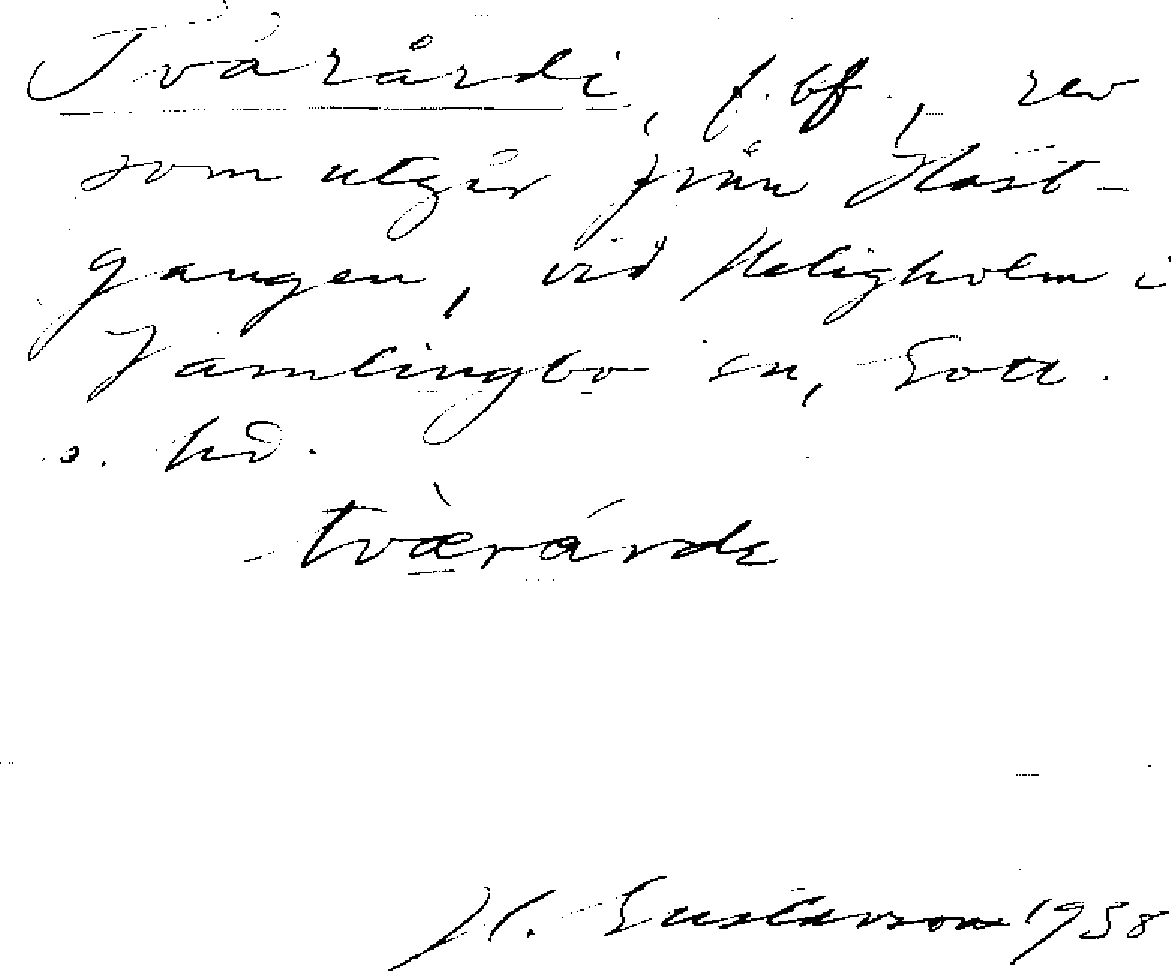 Tvärårdi, f. bf., rev
som utgår från Häst-
gangen, vid Heligholm i
Vamlingbo sn, Gotl.
s. hd.
tvæ̀rárde
H. Gustavson 1938